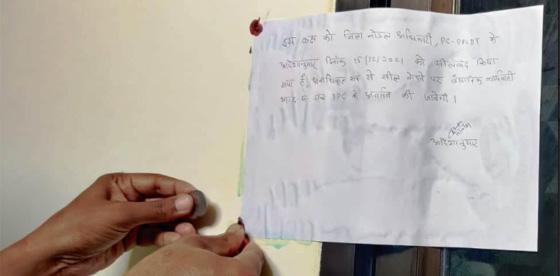 इस कक्ष को जिला नोडल अधिकारी, PC-PNDT के
आदेशानुसार दिनांक 15/12/2021 को सीलबंद किया
गया है। अनाधिकृत रूप से सील तोड़ने पर वैधानिक कार्यवाही
IPC के अन्तर्गत की जावेगी।
आदेशानुसार